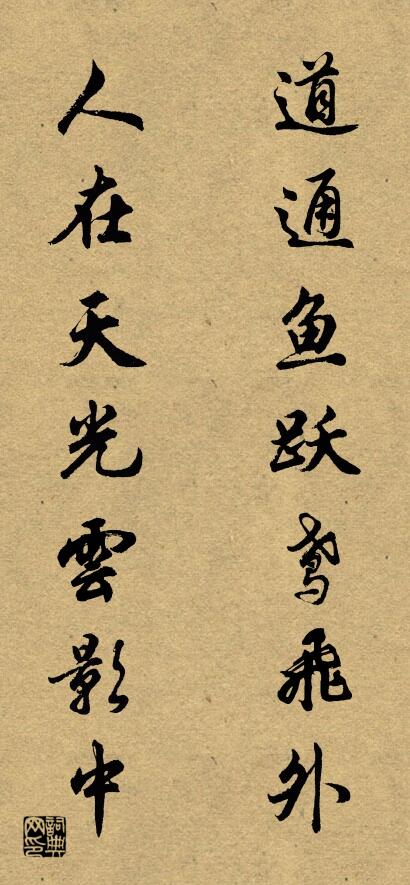 道通鱼跃鸢飞外
人在天光雲影中
詞典網印